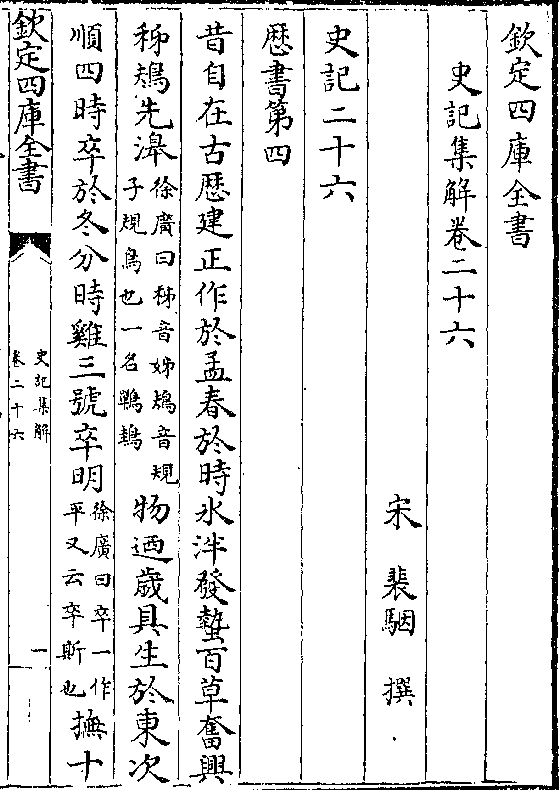 欽定四庫全書
史記集解卷二十六
宋 裴駰 撰
史記二十六
厯書第四
昔自在古厯建正作於孟春於時氷泮發蟄百草奮興
秭鴂先滜徐廣曰秭音姊鴂音規子規鳥也一名鷤𪆰物迺歲具生於東次
順四時卒於冬分時雞三號卒明徐廣曰卒一作平又云卒斯也撫十
欽定四庫全書
史記集解
卷二十六
一